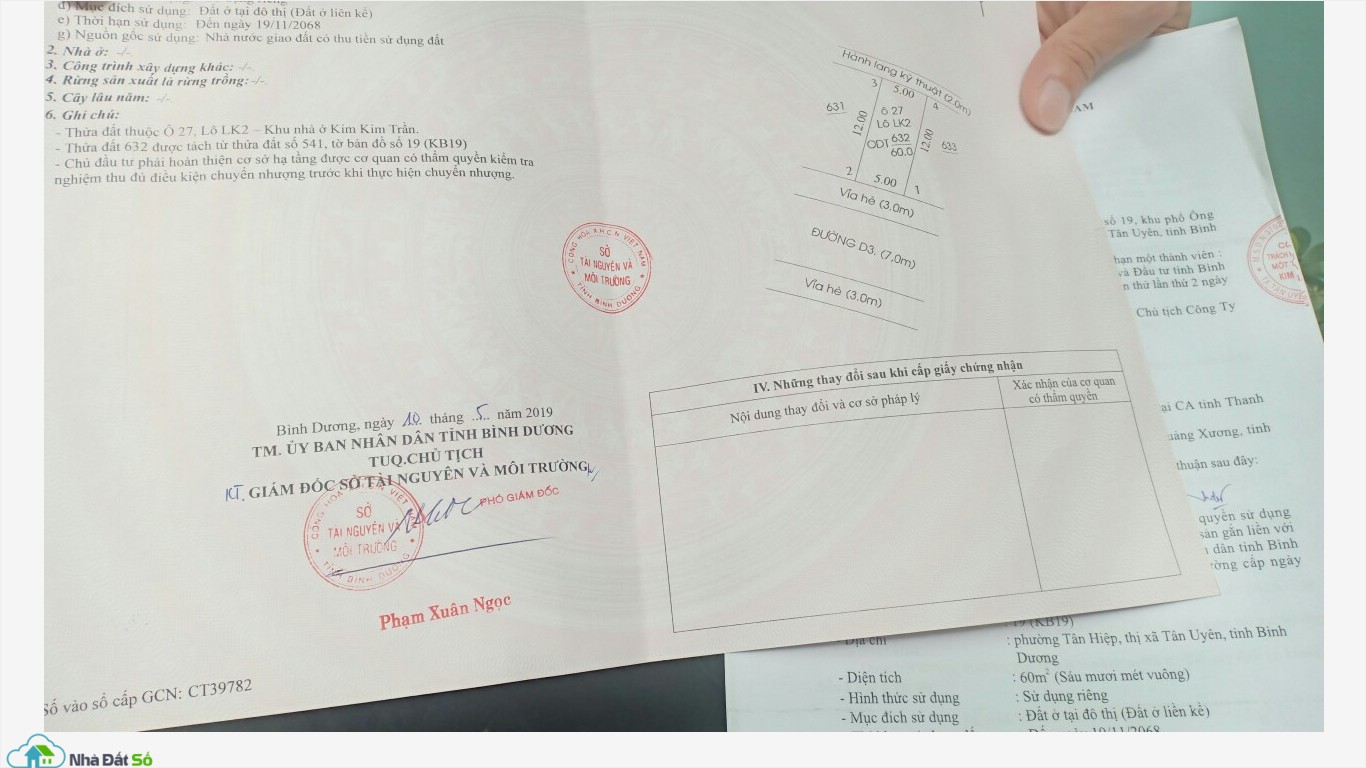 d) Mục đích sử dụng: Đất ở tại đô thị (Đất ở liên kế)
e) Thời hạn sử dụng: Đến ngày 19/11/2068
g) Nguồn gốc sử dụng: Nhà nước giao đất có thu tiền sử dụng đất
2. Nhà ở: -/-
3. Công trình xây dựng khác: -/-
4. Rừng sản xuất là rừng trồng: -/-
5. Cây lâu năm: -/-
6. Ghi chú:
- Thửa đất thuộc Ô 27, Lô LK2 – Khu nhà ở Kim Kim Trần.
- Thửa đất 632 được tách từ thửa đất số 541, tờ bản đồ số 19 (KB19)
- Chủ đầu tư phải hoàn thiện cơ sở hạ tầng được cơ quan có thẩm quyền kiểm tra
nghiệm thu đủ điều kiện chuyển nhượng trước khi thực hiện chuyển nhượng.
CỘNG HÒA X.H.C.N VIỆT NAM
SỞ
TÀI NGUYÊN VÀ
MÔI TRƯỜNG
TỈNH BÌNH DƯƠNG
Bình Dương, ngày 10 tháng 5 năm 2019
TM. ỦY BAN NHÂN DÂN TỈNH BÌNH DƯƠNG
TUQ.CHỦ TỊCH
KT. GIÁM ĐỐC SỞ TÀI NGUYÊN VÀ MÔI TRƯỜNG
PHÓ GIÁM ĐỐC
SỞ
TÀI NGUYÊN VÀ
MÔI TRƯỜNG
TỈNH BÌNH DƯƠNG
Phạm Xuân Ngọc
Số vào sổ cấp GCN: CT39782
Hành lang kỹ thuật (2.0m)
3 5.00 4
631 12.00 Ô 27 12.00 633
Lô LK2
ODT 632
60.0
2 5.00 1
Vỉa hè (3.0m)
ĐƯỜNG D3. (7.0m)
Vỉa hè (3.0m)
IV. Những thay đổi sau khi cấp giấy chứng nhận
Nội dung thay đổi và cơ sở pháp lý
Xác nhận của cơ quan
có thẩm quyền
AM
số 19, khu phố Ông
Tân Uyên, tỉnh Bình
hạn một thành viên :
và Đầu tư tỉnh Bình
n thứ lần thứ 2 ngày
Chủ tịch Công Ty
ại CA tỉnh Thanh
uảng Xương, tỉnh
thuận sau đây:
quyền sử dụng
sản gắn liền với
dân tỉnh Bình
ờng cấp ngày
: 19 (KB19)
- Địa chỉ : phường Tân Hiệp, thị xã Tân Uyên, tỉnh Bình
Dương
- Diện tích : 60m² (Sáu mươi mét vuông)
- Hình thức sử dụng : Sử dụng riêng
- Mục đích sử dụng : Đất ở tại đô thị (Đất ở liên kế)
Nhà Đất Số